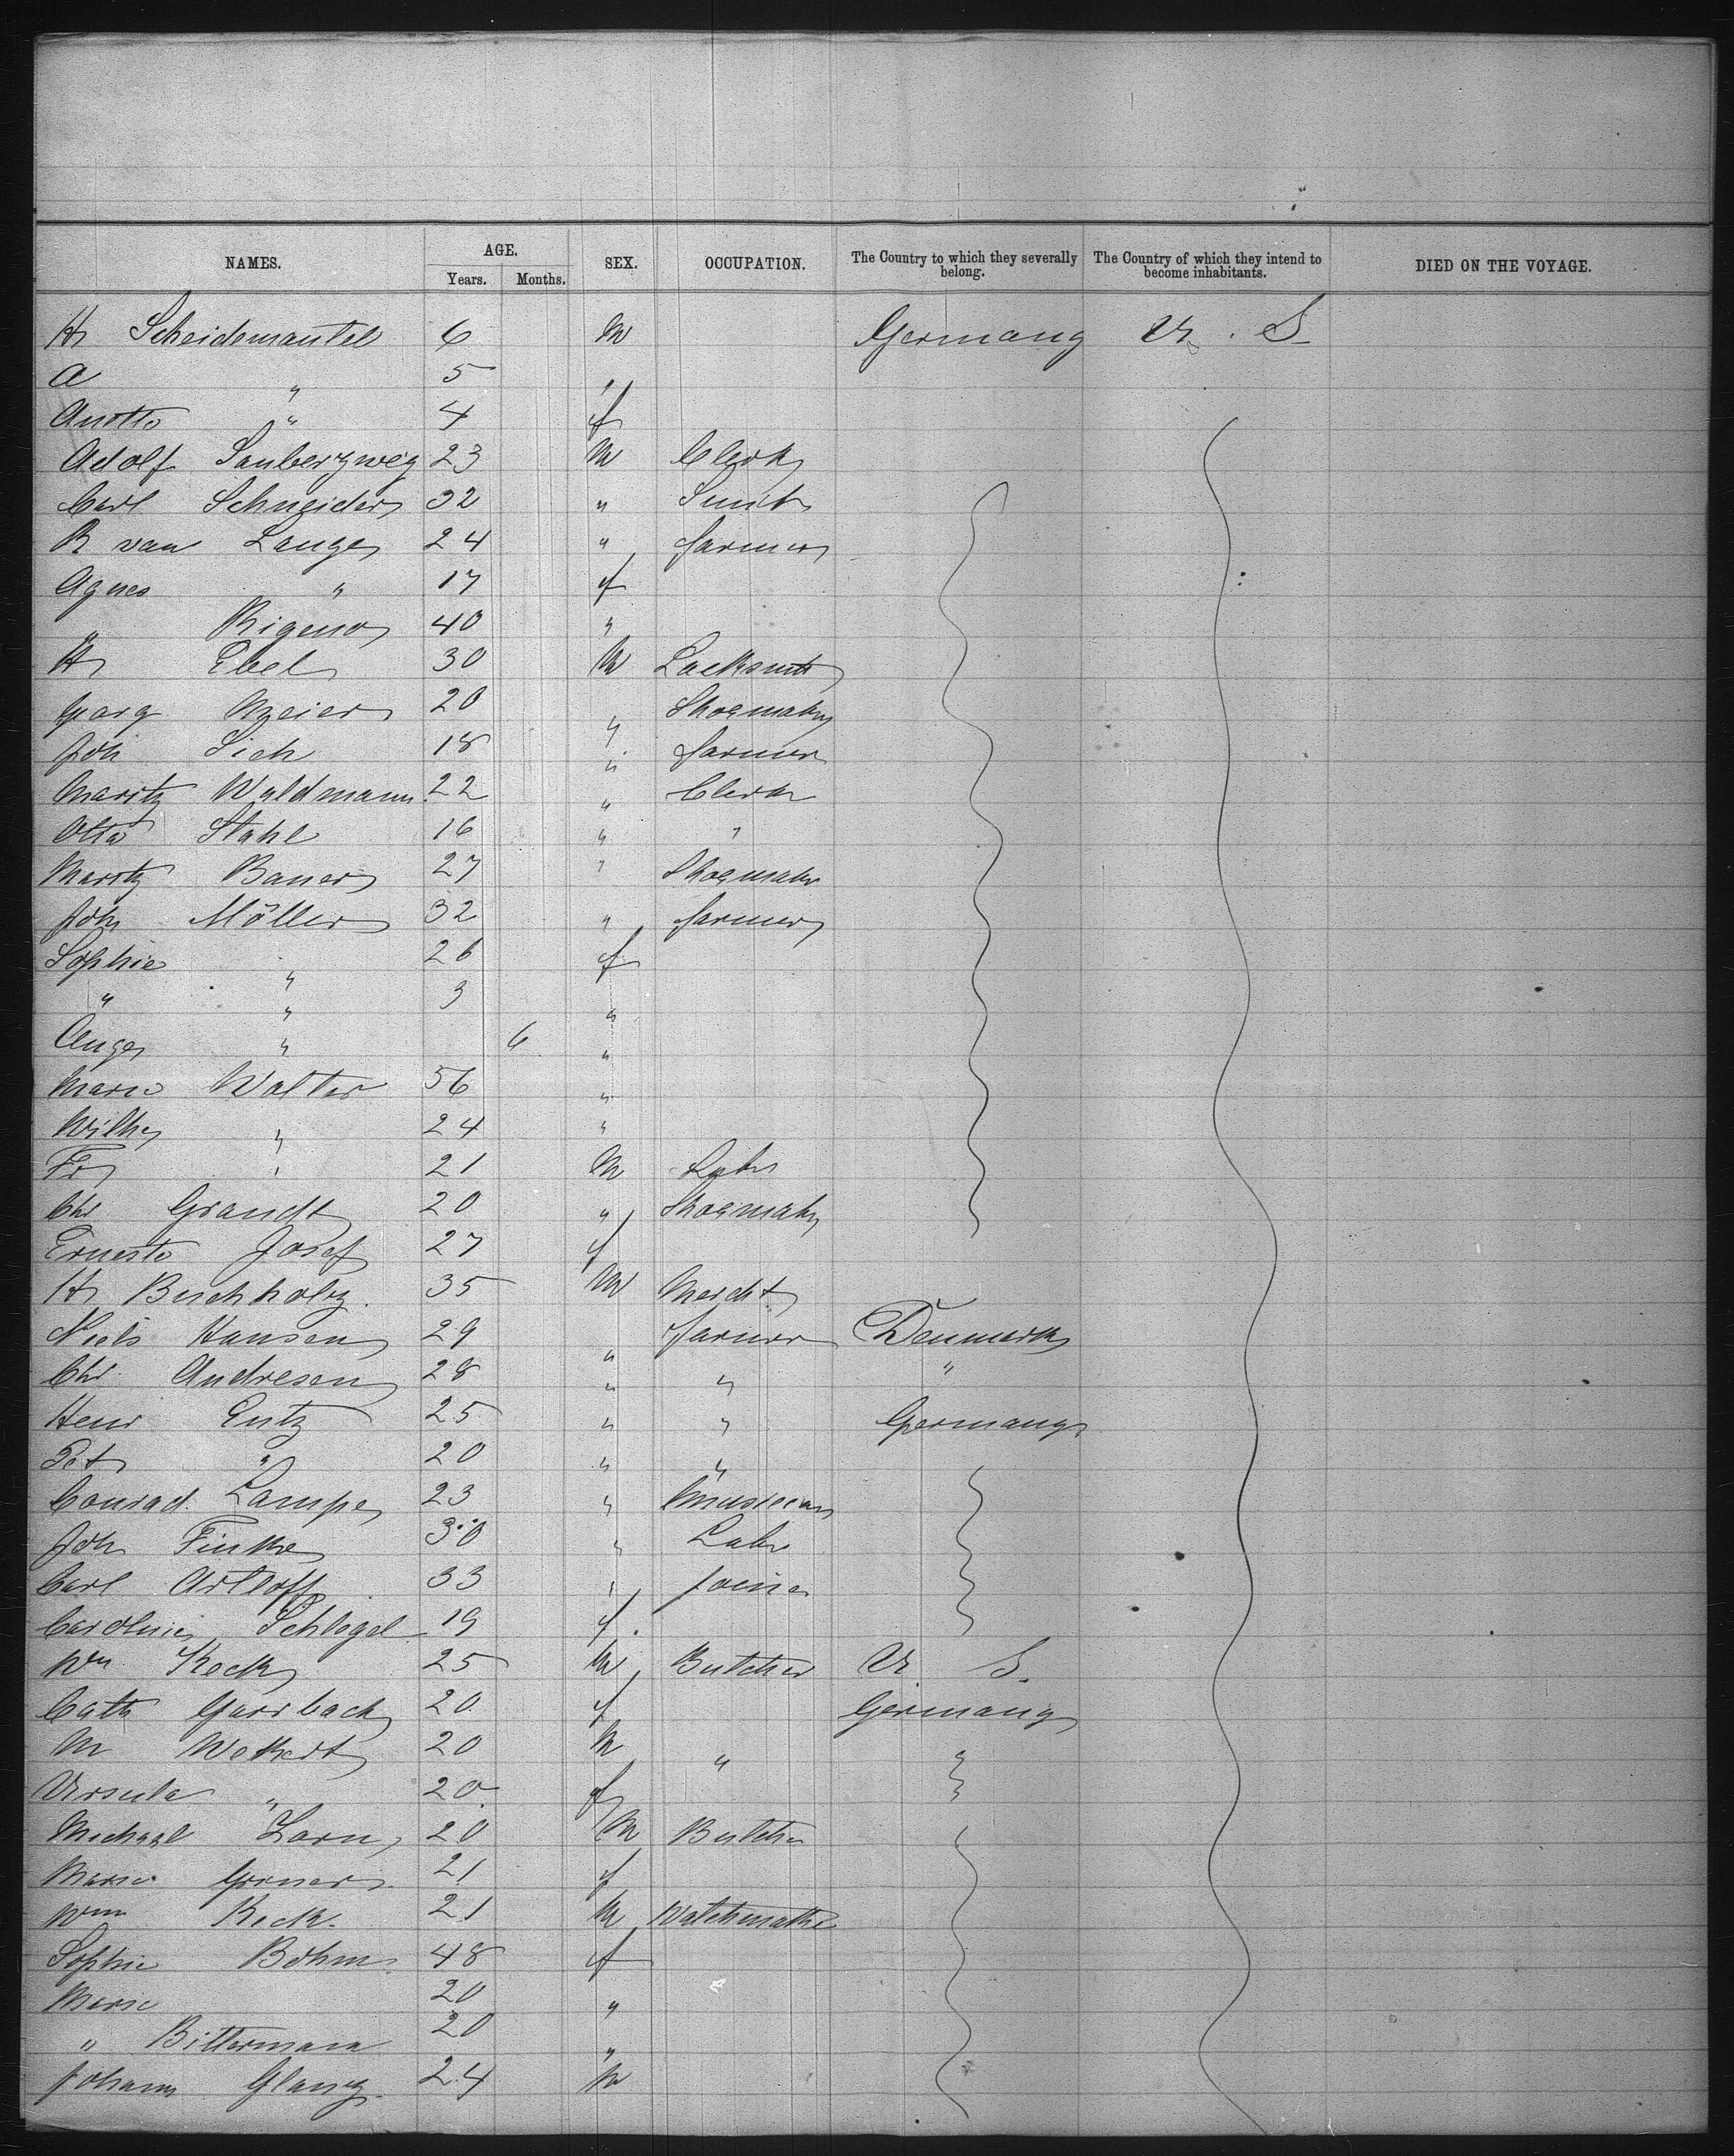 NAMES. AGE. SEX. OCCUPATION. The Country to which they severally belong. The Country of which they intend to become inhabitants. DIED ON THE VOYAGE.
Years. Months.
Hr Scheidemantel 6 M Germany U. S
A " 5 "
" 4 f
Adolf Sauberzweig 23 M Clerk
Carl Schneider 32 " Smith
R van Lange 24 " farmer
Agnes " 17 f
" 40 "
Hr Ebel 30 M Locksmith
Georg Meier 20 " Shoemaker
Joh Sich 18 " farmer
Moritz Waldmann 22 " Clerk
Otto Stahl 16 " "
Moritz Bauer 27 " Shoemakr
Joh Möller 32 " farmer
Sophie " 26 f
" " 3 "
" 6 "
Marie Walter 56 "
Wilh " 24 "
Fr " 21 M Labr
Chr Grandt 20 " Shoemakr
Ernesto Josef 27 f
Hr Buchholz 35 M Mercht
Niels Hansen 29 " farmer Denmark
Chr Andresen 28 " " "
Henr Entz 25 " " Germany
Petr " 20 " "
Conrad Lampe 23 " Musician
Joh Finke 30 " Labr
Carl Artloff 33 " Joiner
Caroline Schlegel 19 f
Wm Keck 25 M Butcher U S.
Cath 20 f Germany
M Weikert 20 M "
Ursula " 20 f
Michael Zorn 20 M Butcher
Marie 21 f
Wm Keck 21 M Watchmaker
Sophie Bohm 48 f
Marie 20 "
" Bittermann 20 "
Johann Glanz 24 M